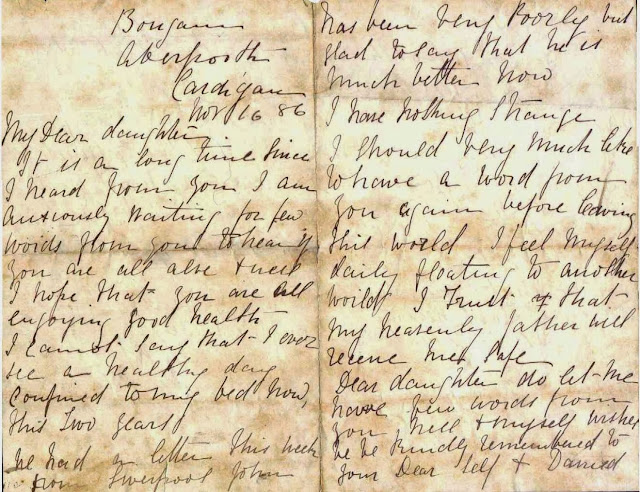 Bongam
Aberporth
Cardigan
Nov 16 86
My Dear daughter
It is a long time since
I heard from you I am
anxiously waiting for few
words from you to hear if
you are all alive & well
I hope that you are all
enjoying good health
I cannot say that I ever
see a healthy day
Confined to my bed now,
this Two years
we had a letter this week
from Liverpool John
has been very Poorly but
glad to say that he is
much better now
I have nothing Strange
I should very much like
to have a word from
you again before leaving
this world I feel myself
daily floating to another
world I Trust & that
my heavenly father will
receive me safe
Dear daughter do let me
have few words from
you & myself wishes
be Kindly remembered to
your Dear self &